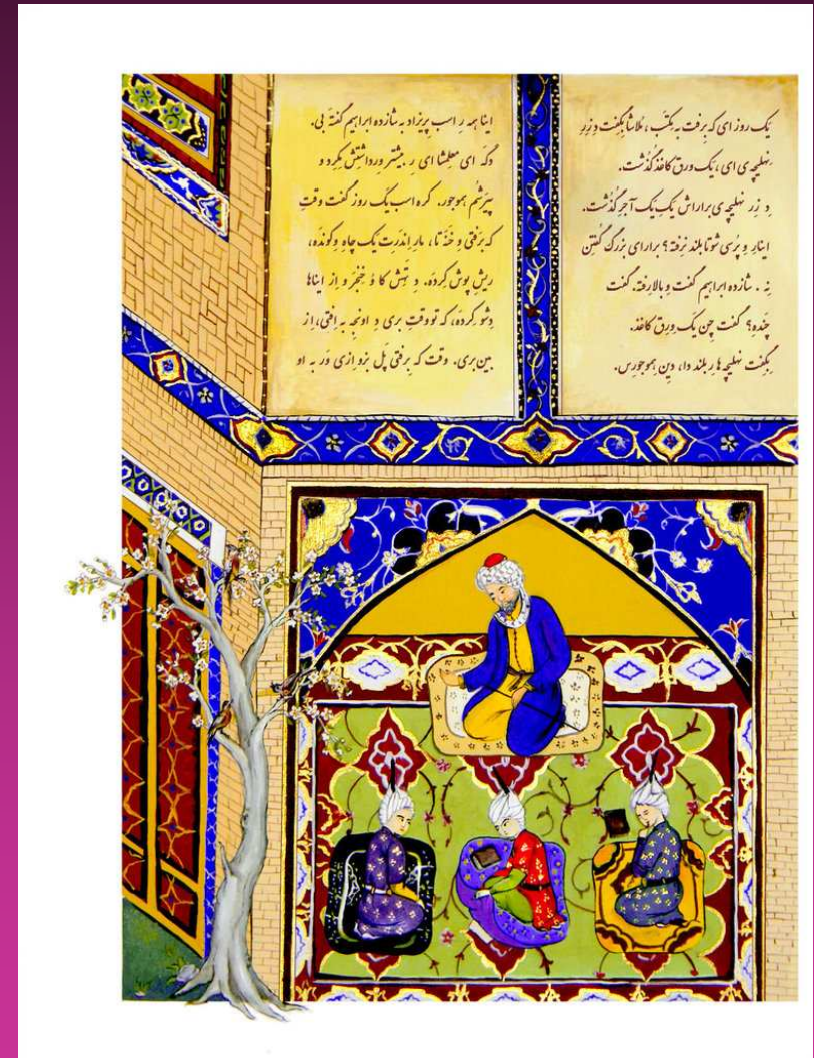 یک روز ای که بِرفت به مکتَب، مُلاشا بِگفت دِ زِرِ
نِهلیچه ی ای، یک ورق کاغذ گذُشت.
دِ زِرِ نهلیچه ی براراش یَک یَک آجر گذُشت.
اینارِ وِ پُرسی شو تا بلند نِرفتهَ؟ برارای بزرگ گفتَن
نِه. شازده ابراهیم گفت و بالا رِفتهَ. گفت
چَنده؟ گفت چن یَک وِرق کاغذ.
بِگفت نهلیچه ها رِ بلند دا، دین هموجورس.
اینا همه رِ اسب پریزاد به شازده ابراهیم گفتهَ بی.
دِگه ای معلمشا ای رِ بیشتر وَرداشتِش مِکرد و
پیرَشُم هموجور. کره اسب یَگ روز گفت وقتِ
که بَرفتی وِ خَنَهَ تا، مارِ اِندَرت یَک چاهِ وِکونده،
ریش پوش کِرده. دِ تِهِش کا دُ خنجَر و از اینا ها
دِشو کِرده، که تو وقتِ بری دِ اونجه به افتی، از
بین بری. وقت که بِرفتی پَل بزو ازی وَر به او